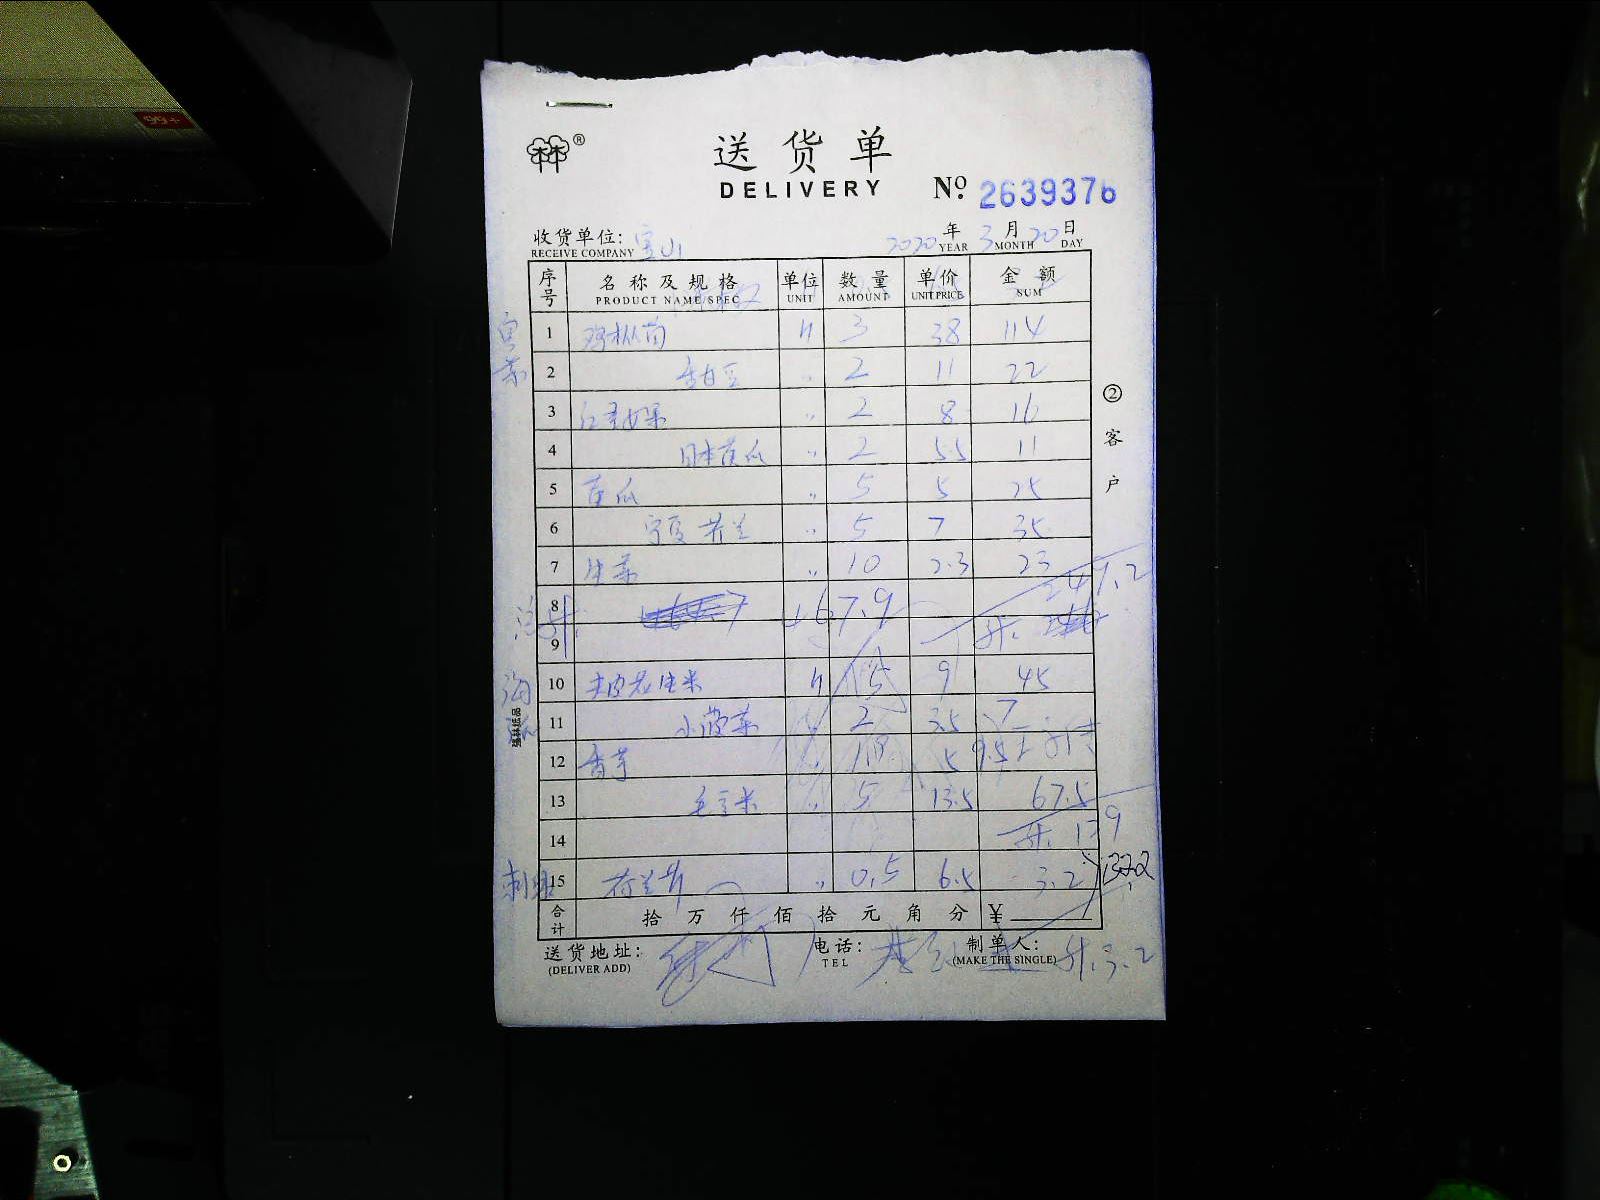 99+
林林®
送货单
DELIVERY
№ 2639376
收货单位: 宝山 2020年 3月 20日
RECEIVE COMPANY YEAR MONTH DAY
序号 名称及规格 单位 数量 单价 金额
PRODUCT NAME/SPEC UNIT AMOUNT UNIT PRICE SUM
1 鸡枞菌 斤 3 38 114
2 甜豆 〃 2 11 22
3 2 8 16
4 日本黄瓜 〃 2 5.5 11
5 黄瓜 〃 5 5 25
6 宁夏 〃 5 7 35
7 生菜 〃 10 2.3 23
247.2
8 167.9
9
10 花生米 斤 5 9 45
11 小菠菜 〃 2 3.5 7
12 香芋 〃 1.9 5 9.5
13 毛豆米 〃 5 13.5 67.5
14 129
15 荷兰芹 〃 0.5 6.5 3.2 132.2
合计 拾 万 仟 佰 拾 元 角 分 ¥
送货地址: 电话: 制单人:
(DELIVER ADD) TEL (MAKE THE SINGLE) 3.2
②客户
强林纸品